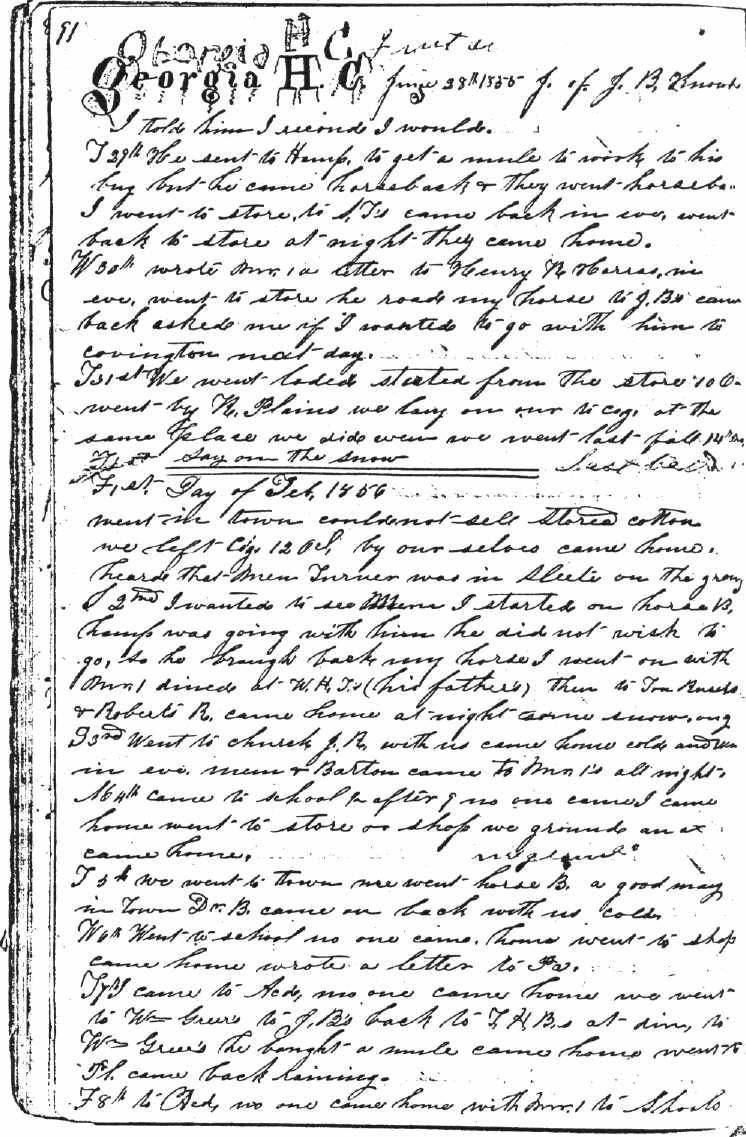 91
Georgia H C
Georgia H. C. June 28th 1855 J. of J. B. Knout
I told him I second I would.
T 29th He sent to Hamp, to get a mule to work to his
bug but he came horseback & they went horseba-
I went to store, to J, T's came back in eve, went
back to store at night they came home.
W 30th wrote Mr. 1 a letter to Henry R Harras, in
eve, went to store he roade my horse to J, B's came
back asked me if I wanted to go with him to
covington next day.
T 31st We went loded started from the store 10 O-
went by R. Plains we lay on our to cog, at the
same place we did when we went last fall 14
lay on the snow last bed
F 1st, Day of Feb, 1856
went in town could not sell stored cotton
we left Cig. 12 O'cl, by our selves came home.
heard that Mem Turner was in Sleete on the
S 2nd I wanted to see Mem I started on horse B,
hamp was going with him he did not wish to
go, so he brough back my horse I went on with
Mr. 1 dined at W. H, T's (his father's) then to Tom Russels
& Roberts R, came home at night some snow, on g
S 3rd Went to church J, R, with us came home cold and
in eve. mem & Barton came to Mr. 1's all night.
M 4th came to school & after 9 no one came I came
home went to store or shop we ground an ax
came home.
T 5th we went to town we went horse B. a good many
in town Dr. B. came on back with us cold
W 6th Went to school no one came. home went to shop
came home wrote a letter to Pa.
T 7th I came to Acd, no one came home we went
to Wm Greer's to J, B's back to T, H, B,s at din, to
Wm Greer's he bought a mule came home went to
Sh. came back raining.
F 8th to Acd, no one came home with Mr. 1 to Shoals